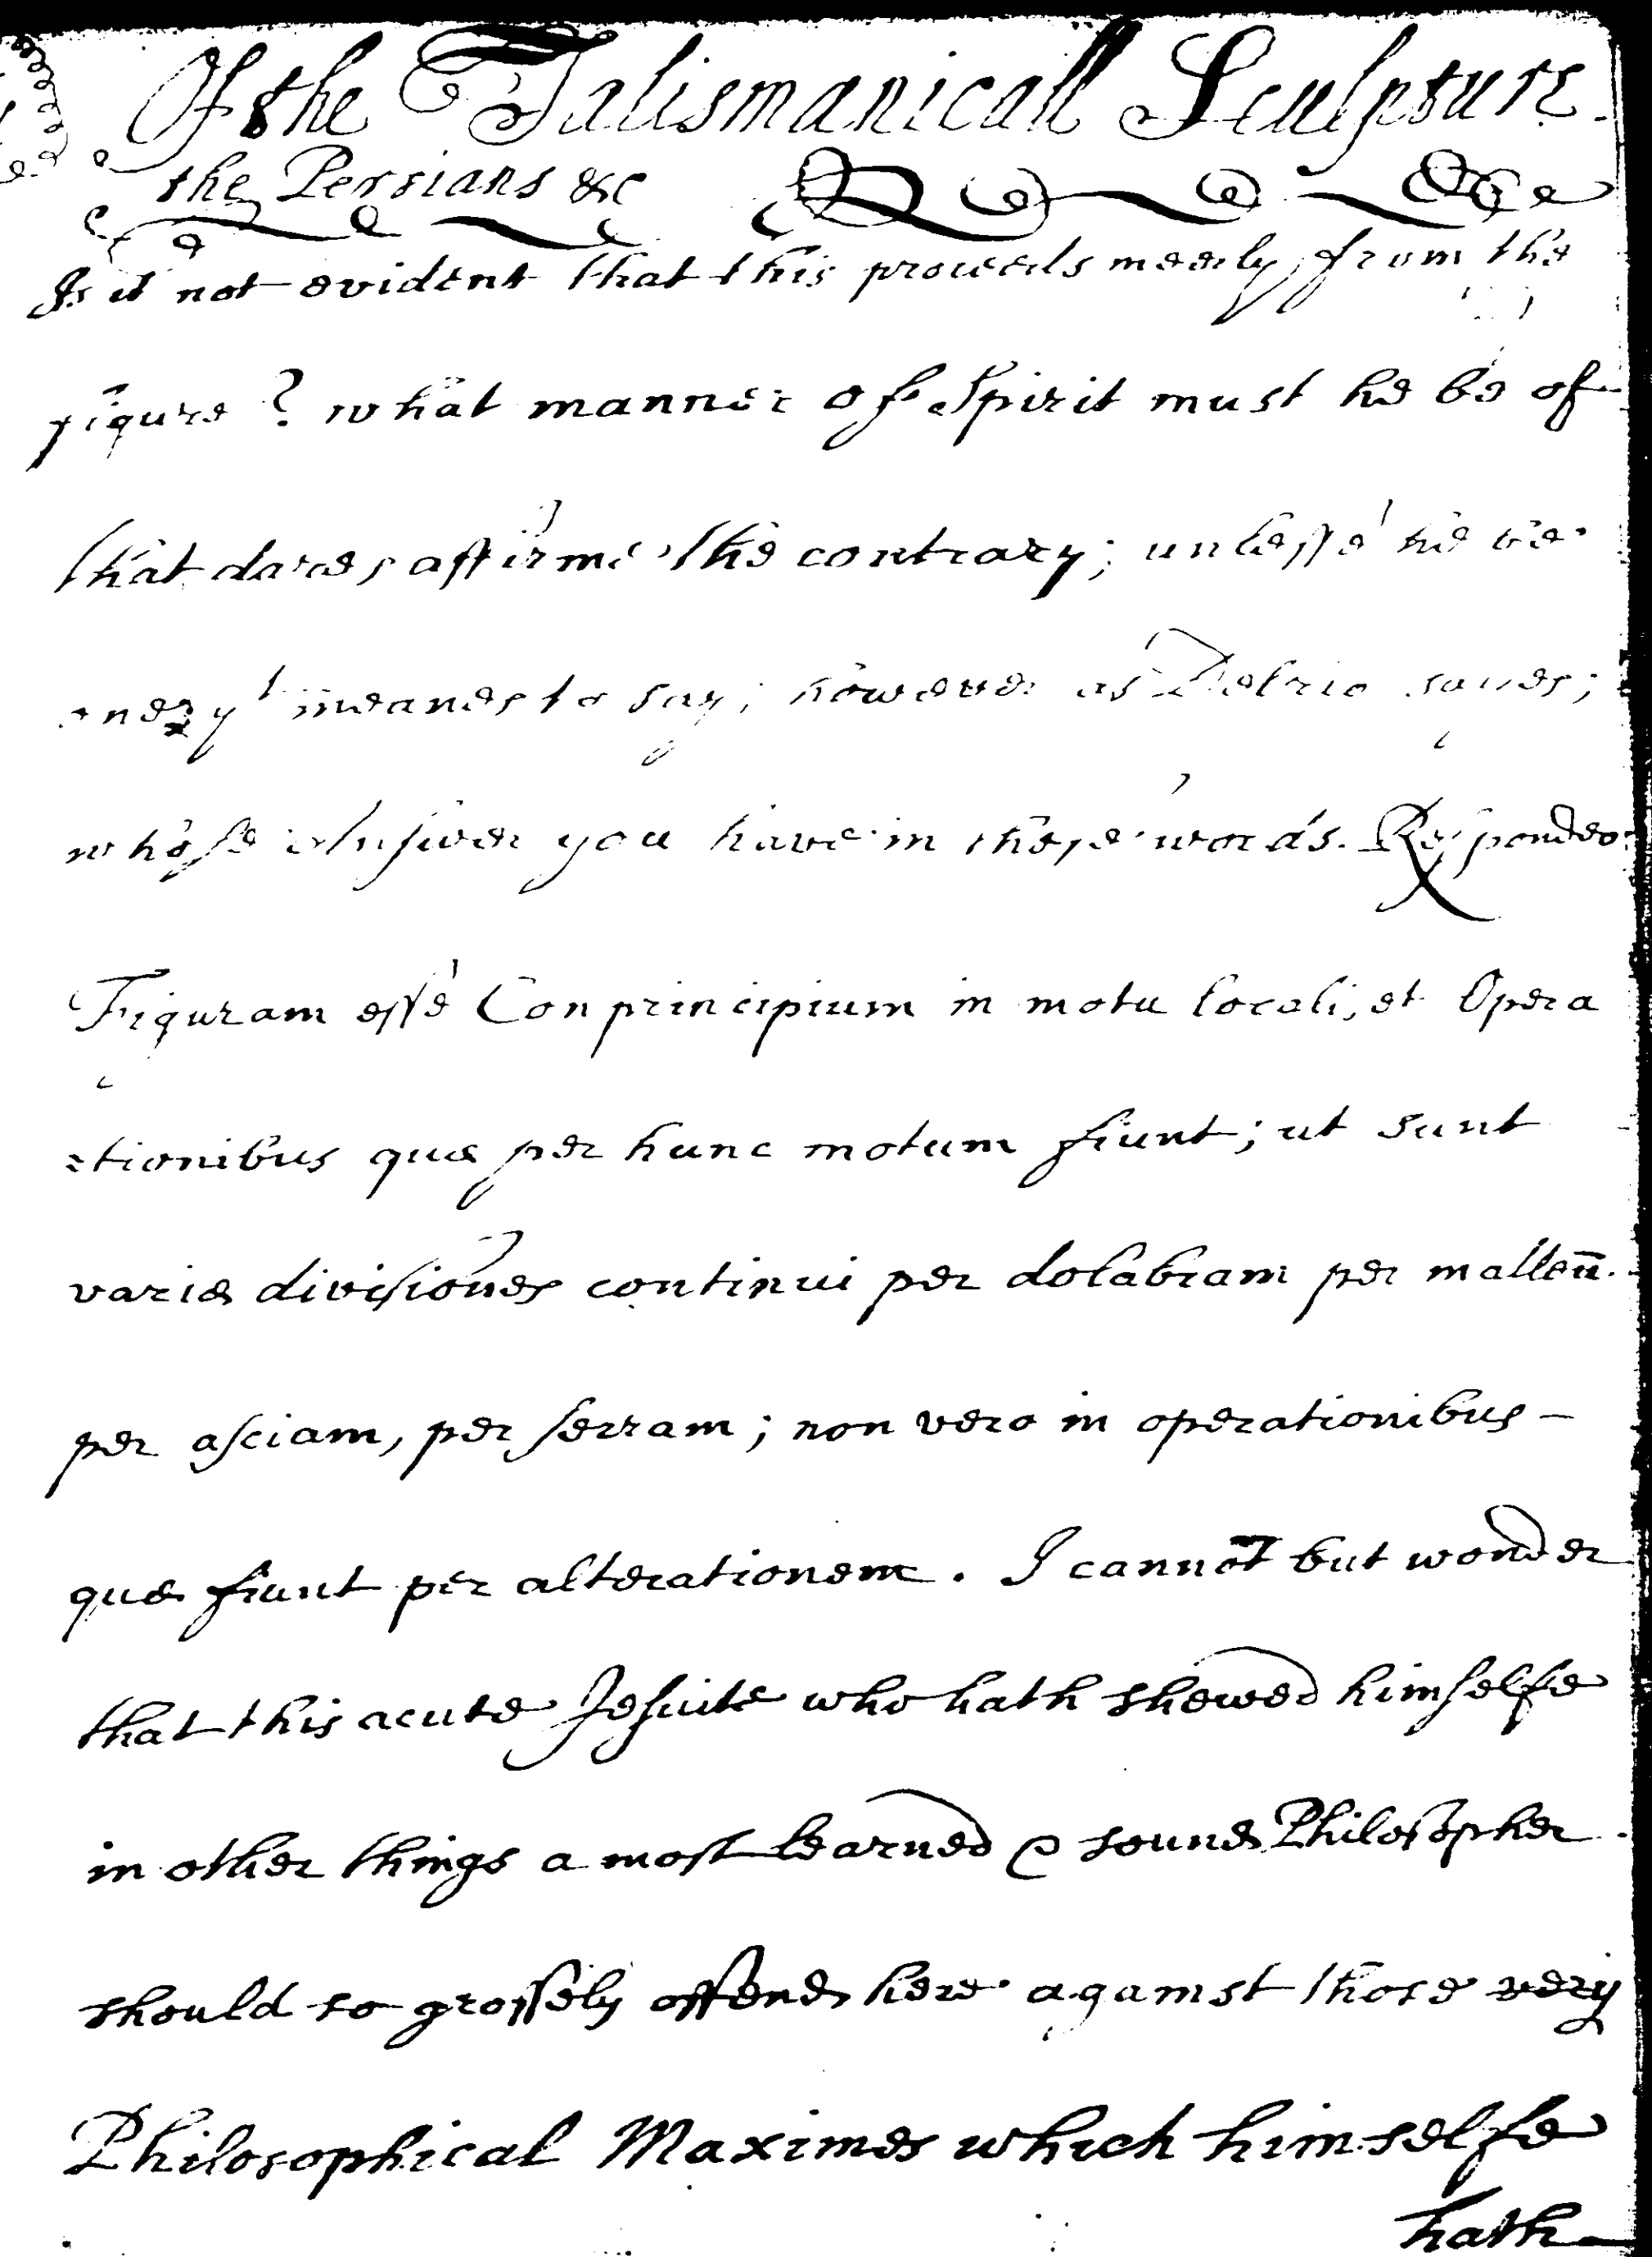 Of the Talismanicall Sculpture.
the Persians &c
Is it not evident that this proceeds meerly from the
figure? what manner of Spirit must he be of
that dares affirme the contrary; unlesse he be
one yt meanes to say; however as Delrio sayes;
whose Answer you have in these words. Respondeo
Figuram esse Conprincipium in motu locali, et Opera
=tionibus quæ per hunc motum fiunt; ut sunt
variæ divisiones continui per dolabram per malleū.
per asciam, per serram; non vero in operationibus -
quæ fiunt per alterationem. I cannot but wonder
that this acute Jesuite who hath shewed himselfe
in other things a most learned & sound Philosopher
should so grossely offend here against those very
Philosophical Maximes which himselfe
hath